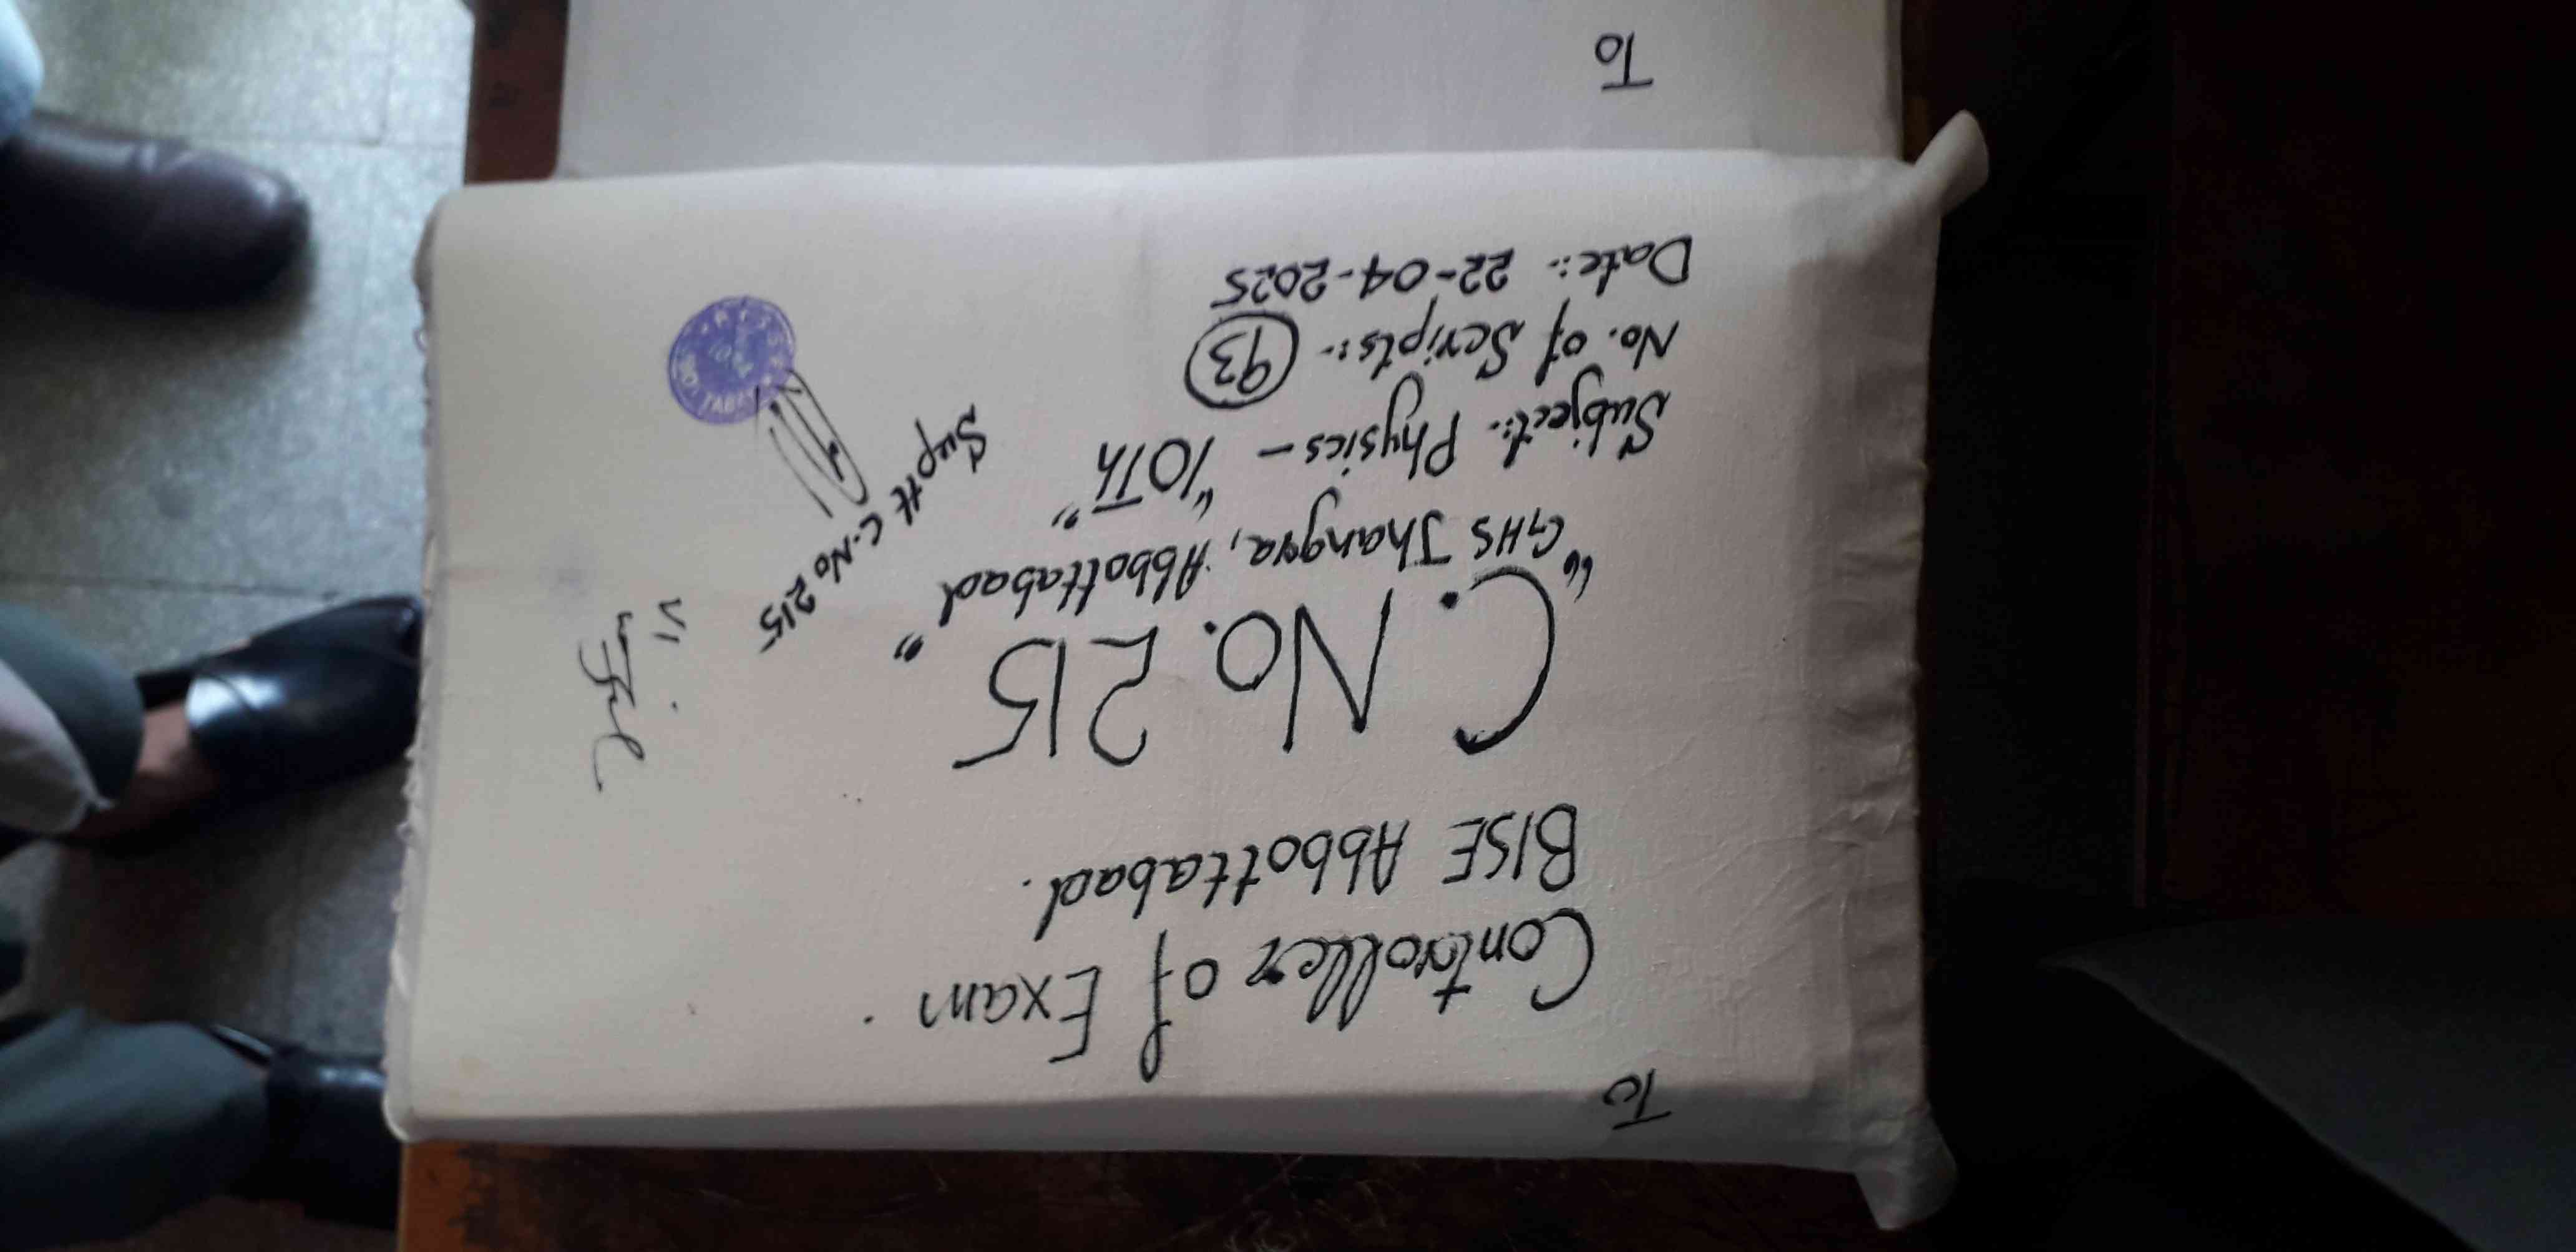 To
Controller of Exam.
BISE Abbottabad.
C. No. 215
“GHS Jhangra, Abbottabad”
Subject:- Physics - “10Th”
No. of Scripts:- 93
Date:- 22-04-2025
Suptt C.No 215
To